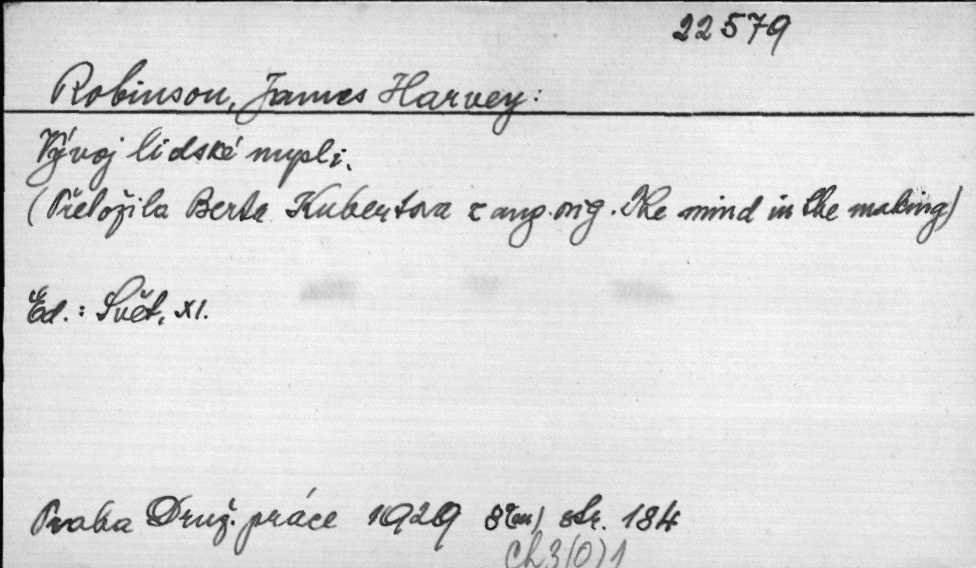 22579
Robinson, James Harvey:
Vývoj lidské mysli.
(Přeložila Berta Kubertova z ang. orig. The mind in the making)
Ed.: Svět, XI.
Praha Druž. práce 1929 8° str. 184
Ch3(0)1